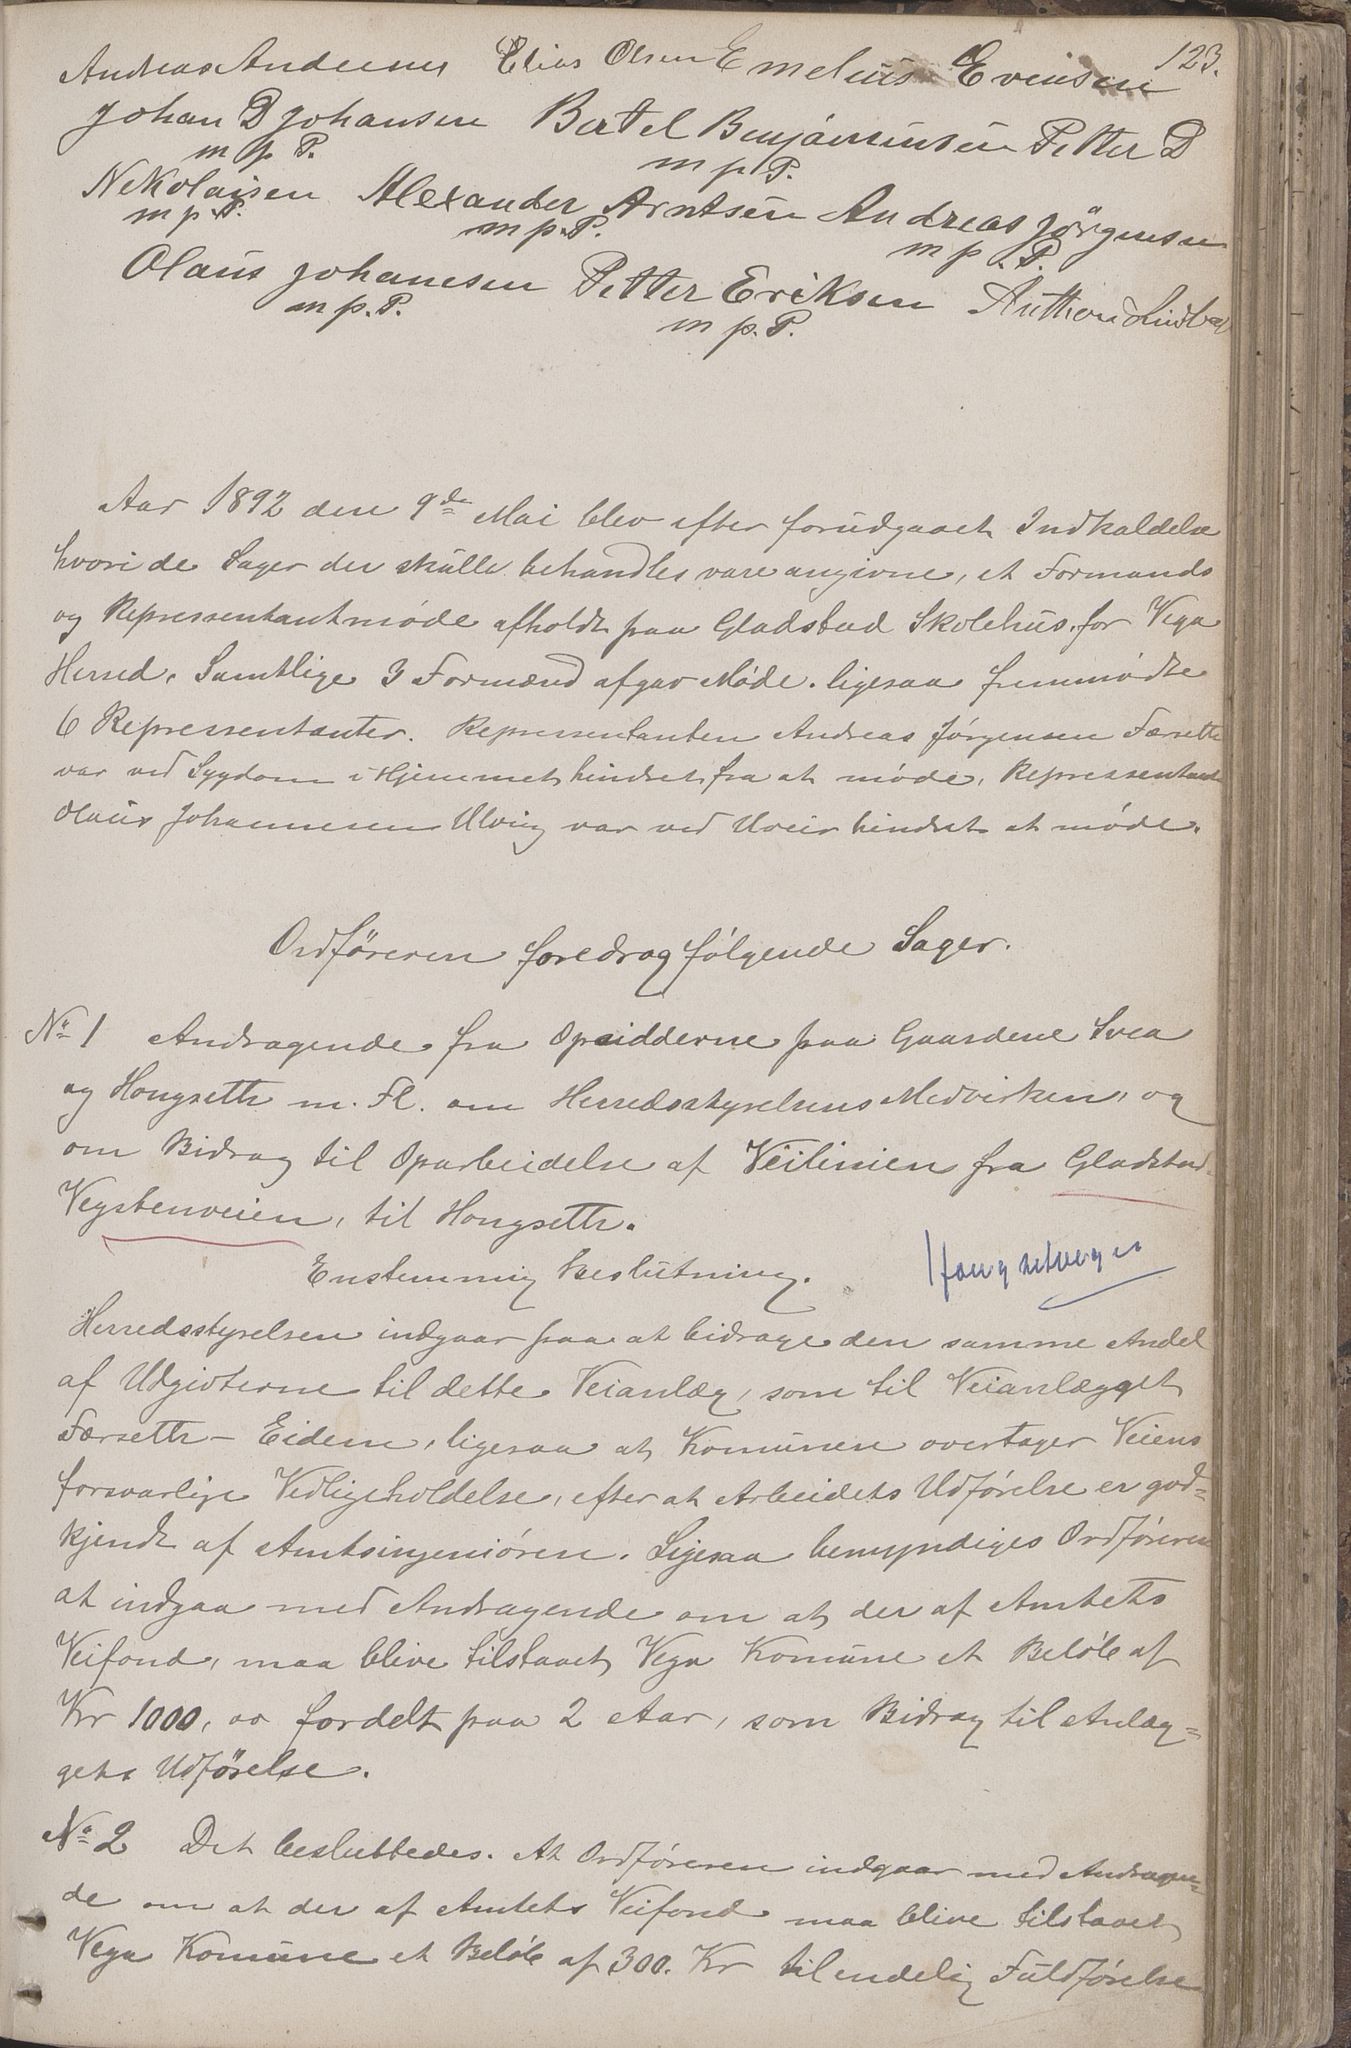 123.
Andreas Andersen Elias Olsen Emelius Evensen
Johan D Johansen Bertel Benjaminsen Petter D
m p P. m p P.
Nekolaisen Alexander Arntsen Andreas Jörgensen
m p. P. m p. P. m p. P.
Olaus Johansen Petter Eriksen Anthon
m p. P. m p. P.
Aar 1892 den 9de Mai blev efter forudgaaet Indkaldelse
hvori de Sager der skulle behandles vare angivne, et Formands
og Repressentantmøde afholdt paa Gladstad Skolehus for Vega
Herred. Samtlige 3 Formænd afgav Møde. ligesaa fremmødte
6 Repressentanter. Repressentanten Andreas Jørgensen Færseth
var ved Sygdom i Hjemmet hindret fra at møde. Repressentant
Olaus Johannesen Ulving var ved Uveir hindret at møde.
Ordføreren foredrog følgende Sager.
No 1 Andragende fra Opsidderne paa Gaardene Svea
og Hongseth m. Fl. om Herredsstyrelsens Medvirken, og
om Bidrag til Oparbeidelse af Veilinien fra Gladstad
Vegstenveien, til Hongseth.
Enstemmig Beslutning.
Hongsetvegen
Herredsstyrelsen indgaar paa at bidrage den samme Andel
af Udgivterne til dette Veianlæg, som til Veianlægget
Færseth - Eidem, ligesaa at Komunen overtager Veiens
forsvarlige Vedligeholdelse, efter at Arbeidets Udførelse er god=
kjendt af Amtsingeniøren. Ligesaa bemyndiges Ordføreren
at indgaa med Andragende om at der af Amtets
Veifond, maa blive tilstaaet Vega Komune et Beløb af
Kr 1000,00 fordelt paa 2 Aar, som Bidrag til Anlæg=
gets Udførelse.
No 2 Det besluttedes. At Ordføreren indgaar med Andragen=
de om at der af Amtets Veifond maa blive tilstaaet
Vega Komune et Beløb af 300. Kr til endelig Fuldførelse